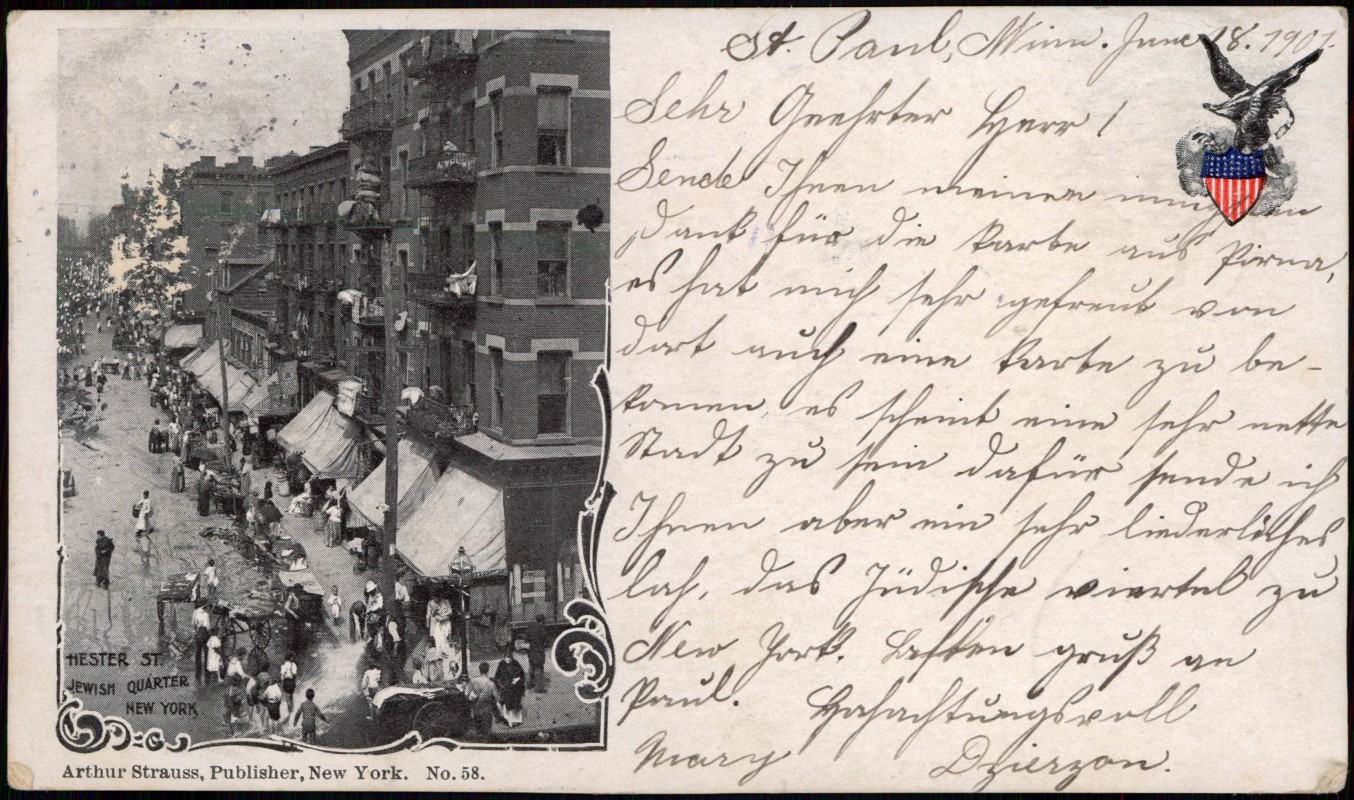 St. Paul, Minn. June 18. 1901.
Sehr Geehrter Herr!
Sende Ihnen meinen
Dank für die Karte aus Pirna,
es hat mich sehr gefreut von
dort auch eine Karte zu be-
komen, es scheint eine sehr nette
Stadt zu sein dafür sende ich
Ihnen aber ein sehr liederliches
das Jüdische viertel zu
New York. Besten gruß an
Paul. Hohachtungsvoll
Mary Dzierzon.
HESTER ST.
JEWISH QUARTER
NEW YORK
Arthur Strauss, Publisher, New York. No. 58.